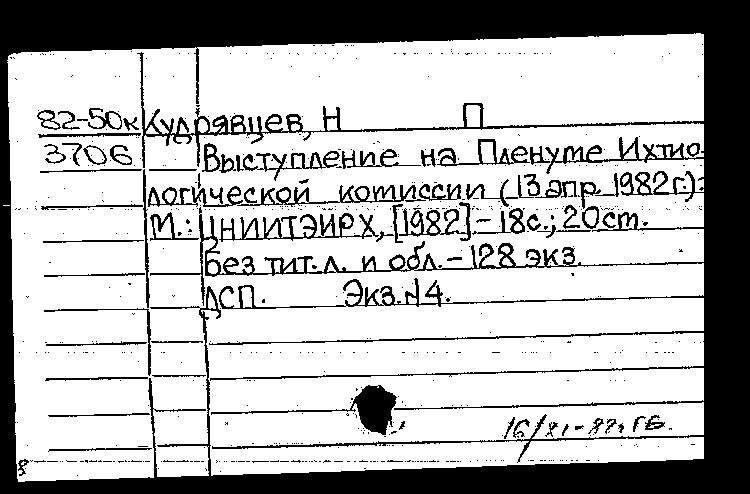 82-50к Кудрявцев, Н П
3706 Выступление на Пленуме Ихтио-
логической комиссии (13 апр. 1982г.):
М.: ЦНИИТЭИРХ, [1982] - 18с.; 20см.
Без тит. л. и обл. - 128 экз.
ДСП. Экз. №4.